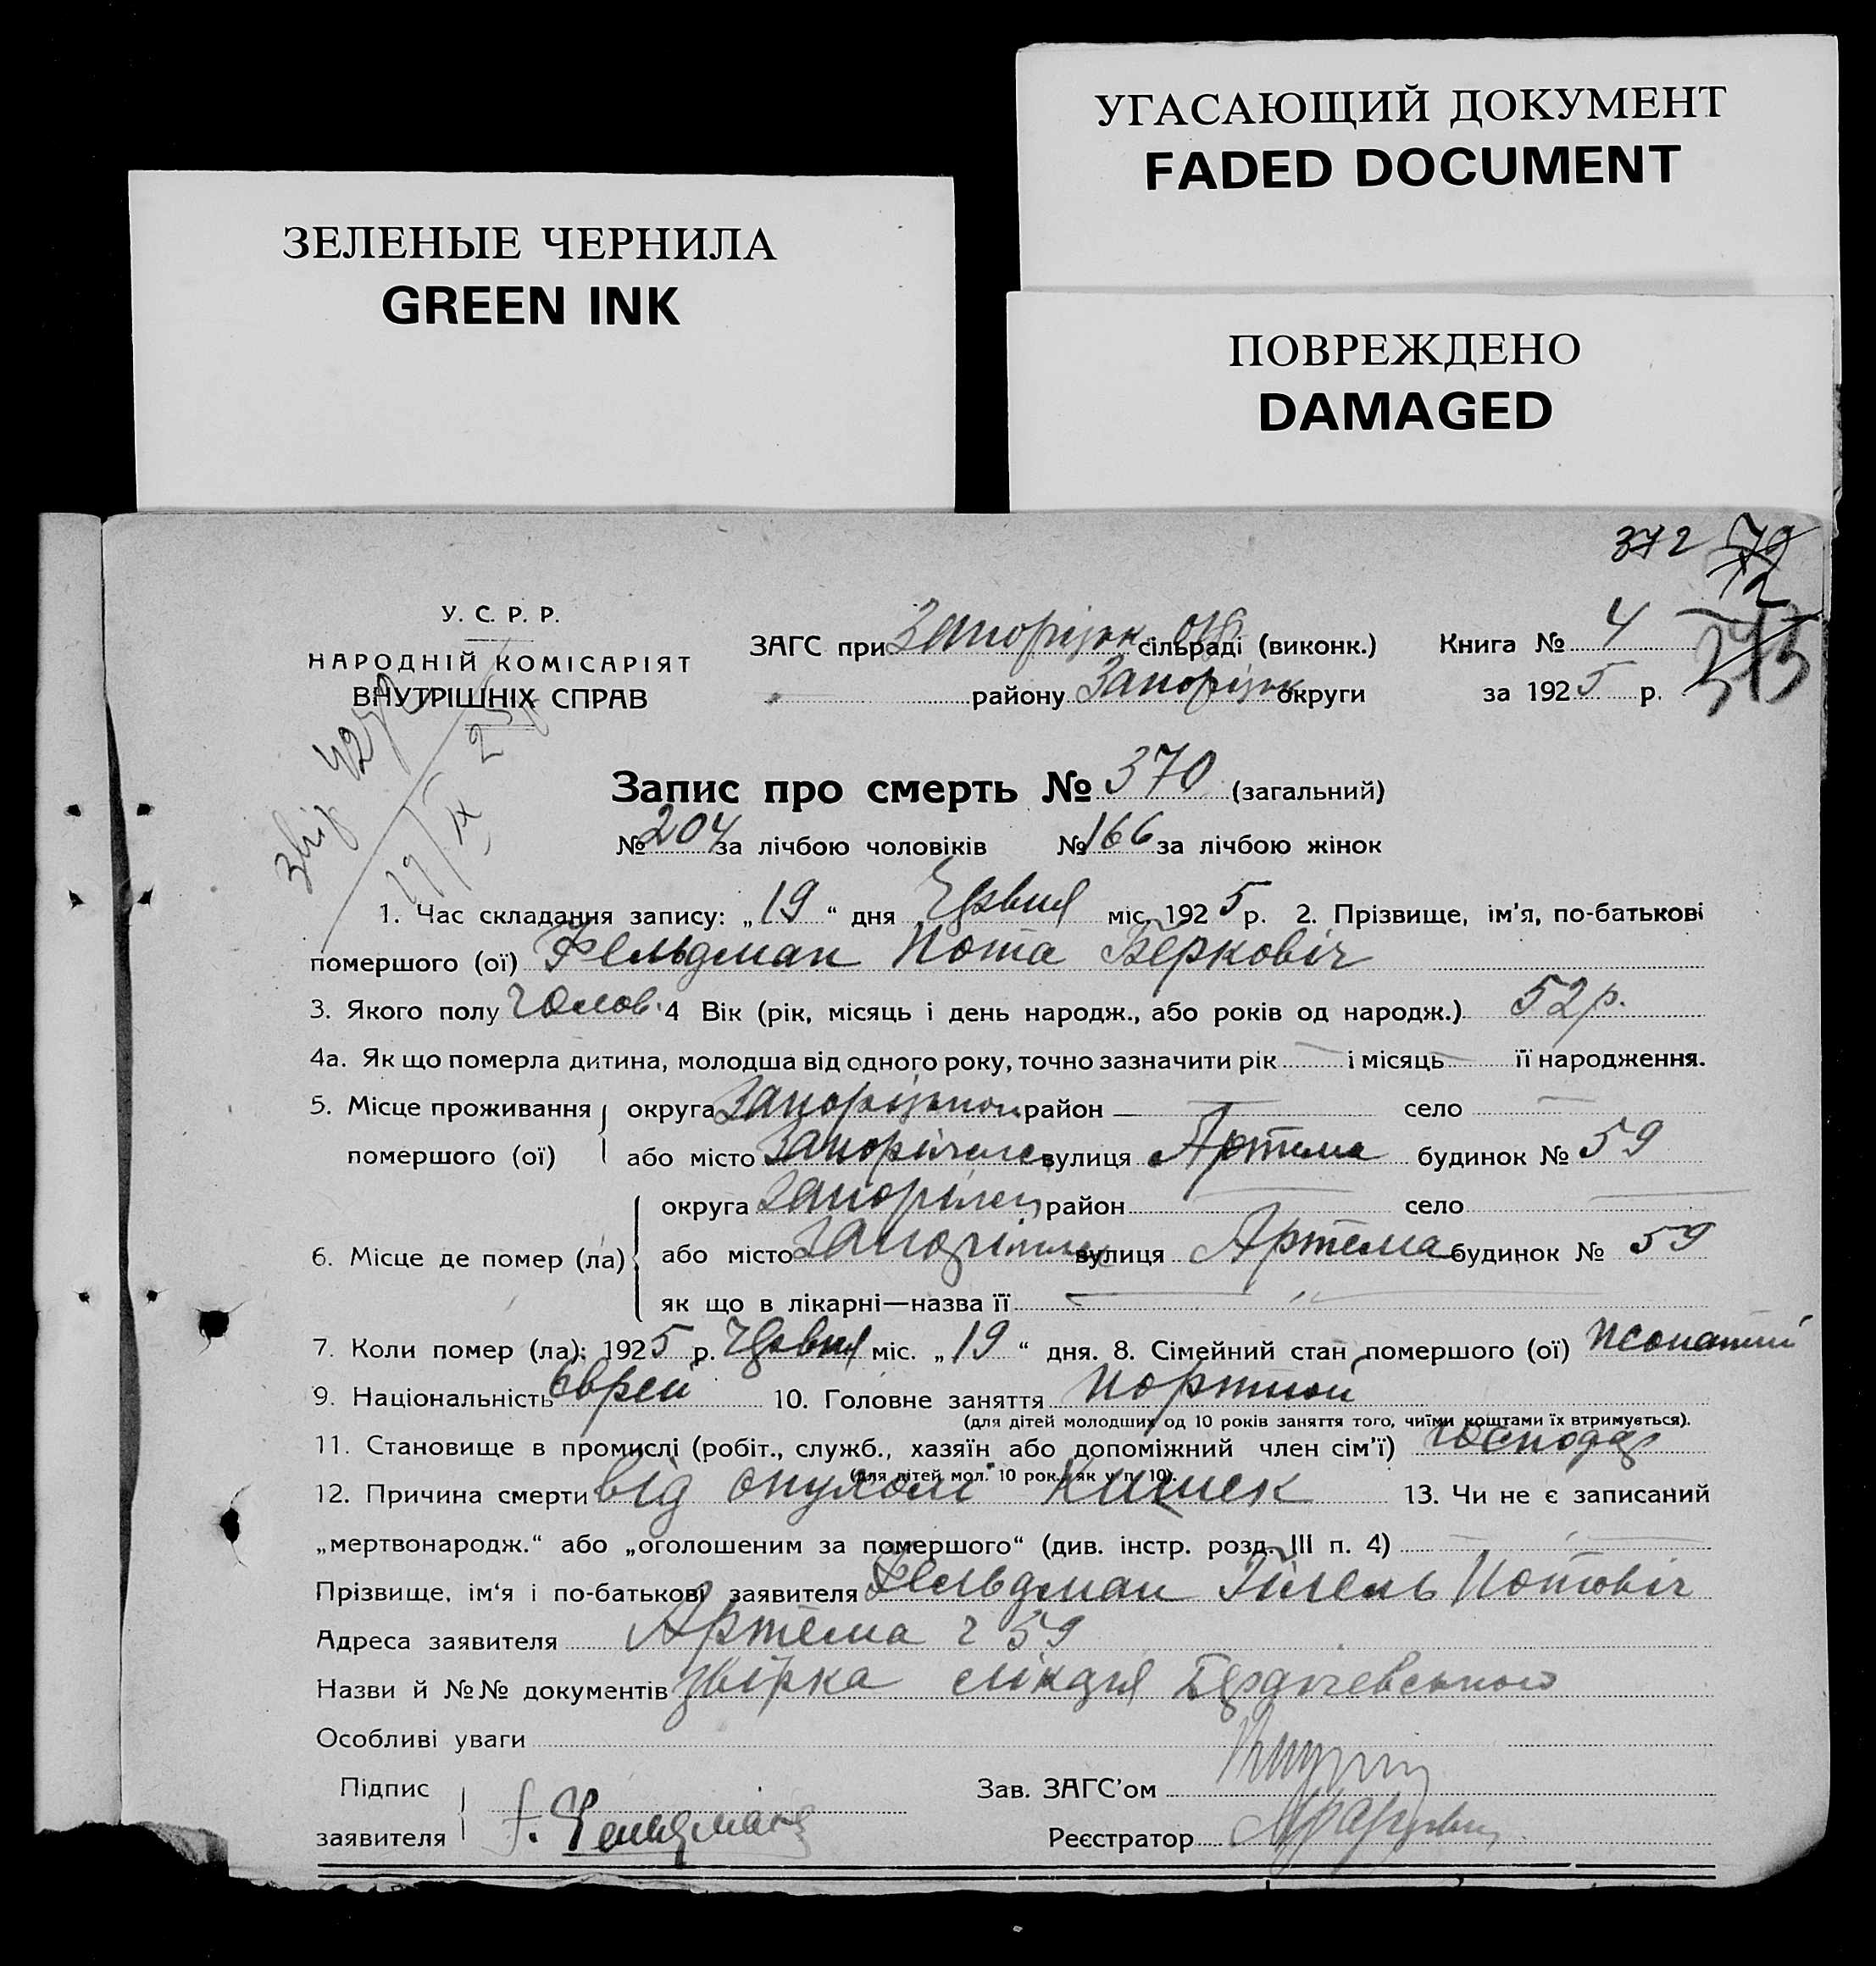 УГАСАЮЩИЙ ДОКУМЕНТ
FADED DOCUMENT
ЗЕЛЕНЫЕ ЧЕРНИЛА
GREEN INK
ПОВРЕЖДЕНО
DAMAGED
372
373
У. С. Р. Р.
НАРОДНІЙ КОМІСАРІЯТ
ВНУТРІШНІХ СПРАВ
ЗАГС при Запоріжк. сільраді (виконк.) Книга № 4
району Запоріжк округи за 1925 р.
Запис про смерть № 370 (загальний)
№ 204 за лічбою чоловіків № 166 за лічбою жінок
1. Час складання запису: „19“ дня Червня міс. 1925 р. 2. Прізвище, ім'я, по-батькові
помершого (ої) Фельдман Нота Беркович
3. Якого полу Чолов. 4 Вік (рік, місяць і день народж., або років од народж.) 52 р.
4а. Як що померла дитина, молодша від одного року, точно зазначити рік — і місяць — її народження.
5. Місце проживання округа район — село —
помершого (ої) або місто вулиця Артема будинок № 59
округа район — село —
6. Місце де помер (ла) або місто вулиця Артема будинок № 59
як що в лікарні—назва її —
7. Коли помер (ла): 1925 р. Червня міс. „19“ дня. 8. Сімейний стан помершого (ої) Жонатий
9. Національність Єврей 10. Головне заняття Портной
(для дітей молодших од 10 років заняття того, чиїми коштами їх втримується).
11. Становище в промислі (робіт., служб., хазяїн або допоміжний член сім'ї) Господар
(для дітей мол. 10 рок. як у п. 10).
12. Причина смерти від опухолі Кишек 13. Чи не є записаний
„мертвонародж.“ або „оголошеним за помершого“ (див. інстр. розд. III п. 4) —
Прізвище, ім'я і по-батькові заявителя Фельдман Гилель Нотовіч
Адреса заявителя Артема ч 59
Назви й №№ документів
Особливі уваги
Підпис Зав. ЗАГС'ом
заявителя Фельдман Реєстратор